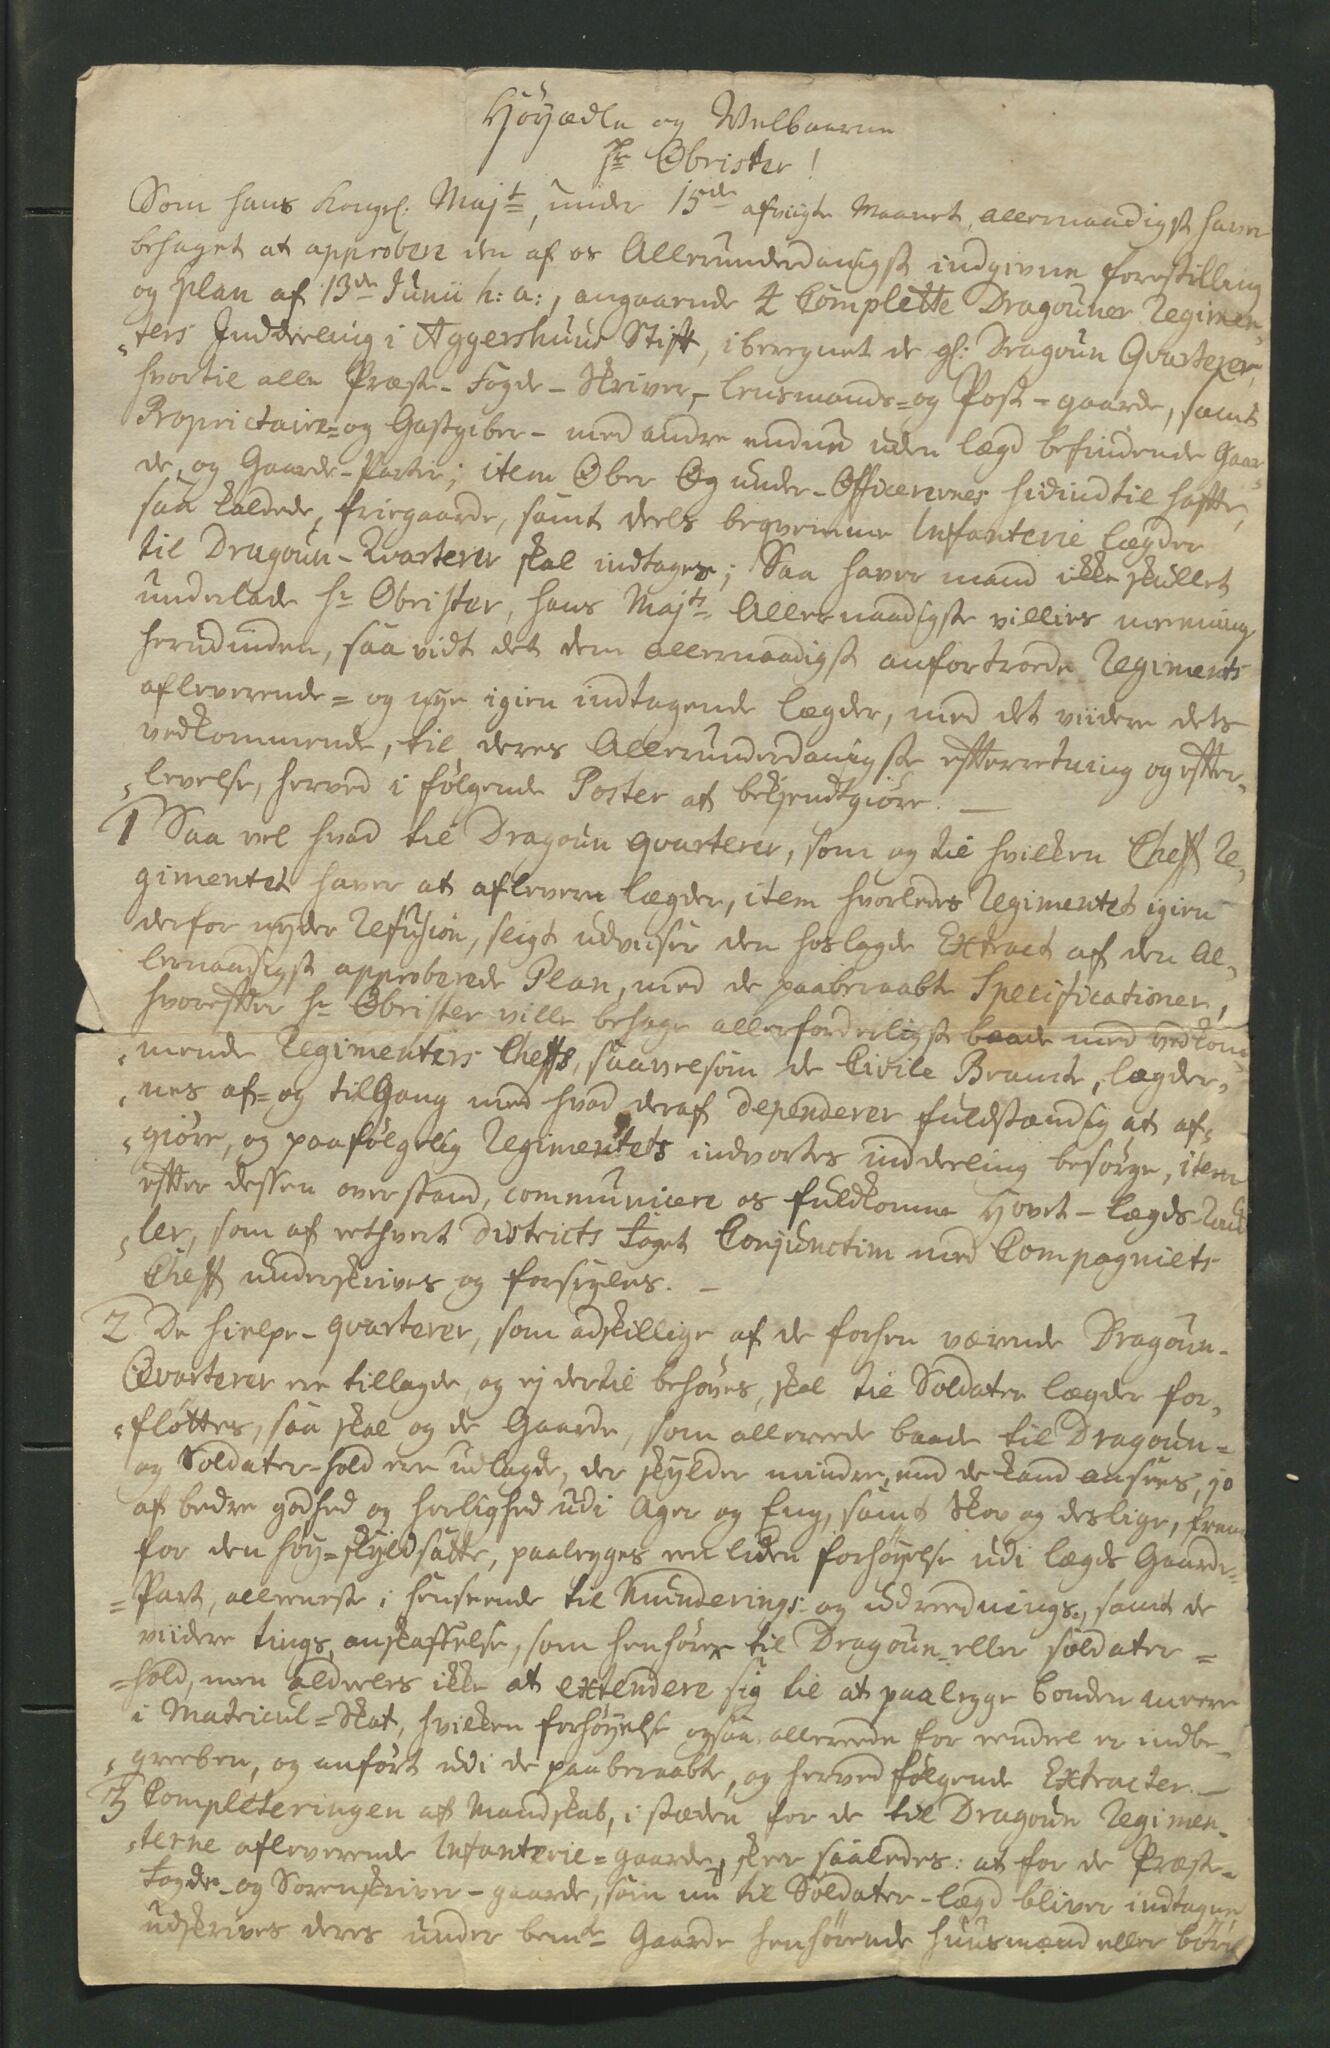 Høyædle og Welbaarne
Hr Obrister!
Som hans Kongel: Majt, under 15de afvigte Maanet, allernaadigst haver
behaget at approbere den af os Allerunderdanigst indgivne forestilling
og plan af 13de Junii h: a:, angaaende 4 Complette Dragouner Regimen„
„ters Inddeeling i Aggershuus Stift, iberegnet de gl: Dragoun Qvarterer,
hvortil alle Præste- Fogde- Skriver- lensmands= og Post-gaarde, samt
Proprietaire= og Gastgiber- med andre endnu uden lægd befindende Gaar„
de, og Gaarde-Parter; item Ober Og under-Officerernes hidindtil hafte,
saa kaldede, friegaarde, samt deels beqvemme Infanterie lægder
til Dragoun-Qvarterer skal indtages; Saa haver mand ikke skullet
underlade Hr Obrister, hans Majts Allernaadigste villies meening
herudinden, saa vidt det dem allernaadigst anfortroede Regiments
afleverende= og nye igien indtagende lægder, med det viidere dets
vedkommende, til deres Allerunderdanigste efterretning og efter„
„levelse, herved i følgende Poster at bekiendtgiøre. —
1 Saa vel hvad til Dragoun qvarterer, som og til hvilken Cheff Re„
gimentet haver at aflevere lægder, item hvorledes Regimentet igien
derfor nyder Refusion, sligt udviiser den hoslagde Extract af den Al„
lernaadigst approberede Plan, med de paaberaabte Specificationer,
hvorefter Hr Obrister ville behage allerforderligst baade med vedkom„
„mende Regimenters Cheffs, saavelsom de Civile Betiente, lægder„
„nes af= og tilGang med hvad deraf dependerer fuldstændig at af„
„giøre, og paafølgelig Regimentets indvortes inddeeling besørge, item
efter dessen overstand, communicere os fuldkomne Hovet-lægds-Rul„
„ler, som af ethvert Districts Foget Conjunctim med Compagniets
Cheff underskrives og forsegles. —
2 De hielpe-qvarterer, som adskillige af de forhen værende Dragoun-
Qvarterer ere tillagde, og ej dertil behøves, skal til Soldater lægder for„
„fløttes, saa skal og de Gaarde, som allereede baade til Dragoun=
og Soldater-hold ere udlagde, der skylder mindre, end de kand ansees, jo
af bedre godhed og herlighed udi Ager og Eng, samt Skov og deslige, frem
for den høy=skyldsatte, paalegges een liden forhøyelse udi lægds Gaarde=
=Part, alleeneste i henseende til Munderings- og udreednings-, samt de
viidere tings anskaffelse, som henhører til Dragoun- eller soldater=
=hold, men aldeeles ikke at extendere sig til at paalegge bonden meere
i Matricul=Skat, hvilken forhøyelse ogsaa allereede for eendeel er indbe„
„greeben, og anført udi de paaberaabte, og herved følgende Extracter. —
3 Completeringen af Mandskab, i stæden for de til Dragoun Regimen„
„terne afleverende Infanterie=gaarde, skeer saaledes: at for de Præste=
Fogde- og Sorenskriver-gaarde, som nu til Soldater-lægd bliver indtagne,
udskrives deres under bemte Gaarde henhørende huusmænd eller børn